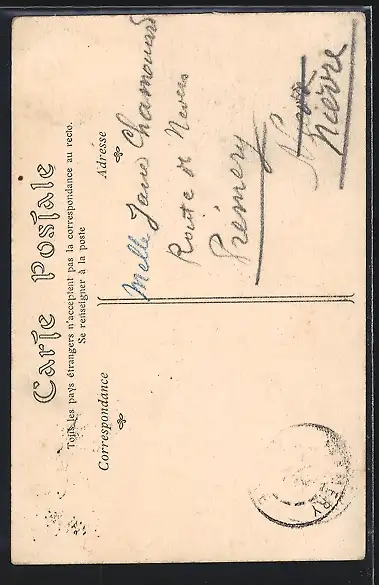 Carte Postale
Tous les pays étrangers n'acceptent pas la correspondance au recto.
Se renseigner à la poste
Correspondance
Adresse
Melle Jane Chamouard
Route de Nevers
Prémery
Nièvre